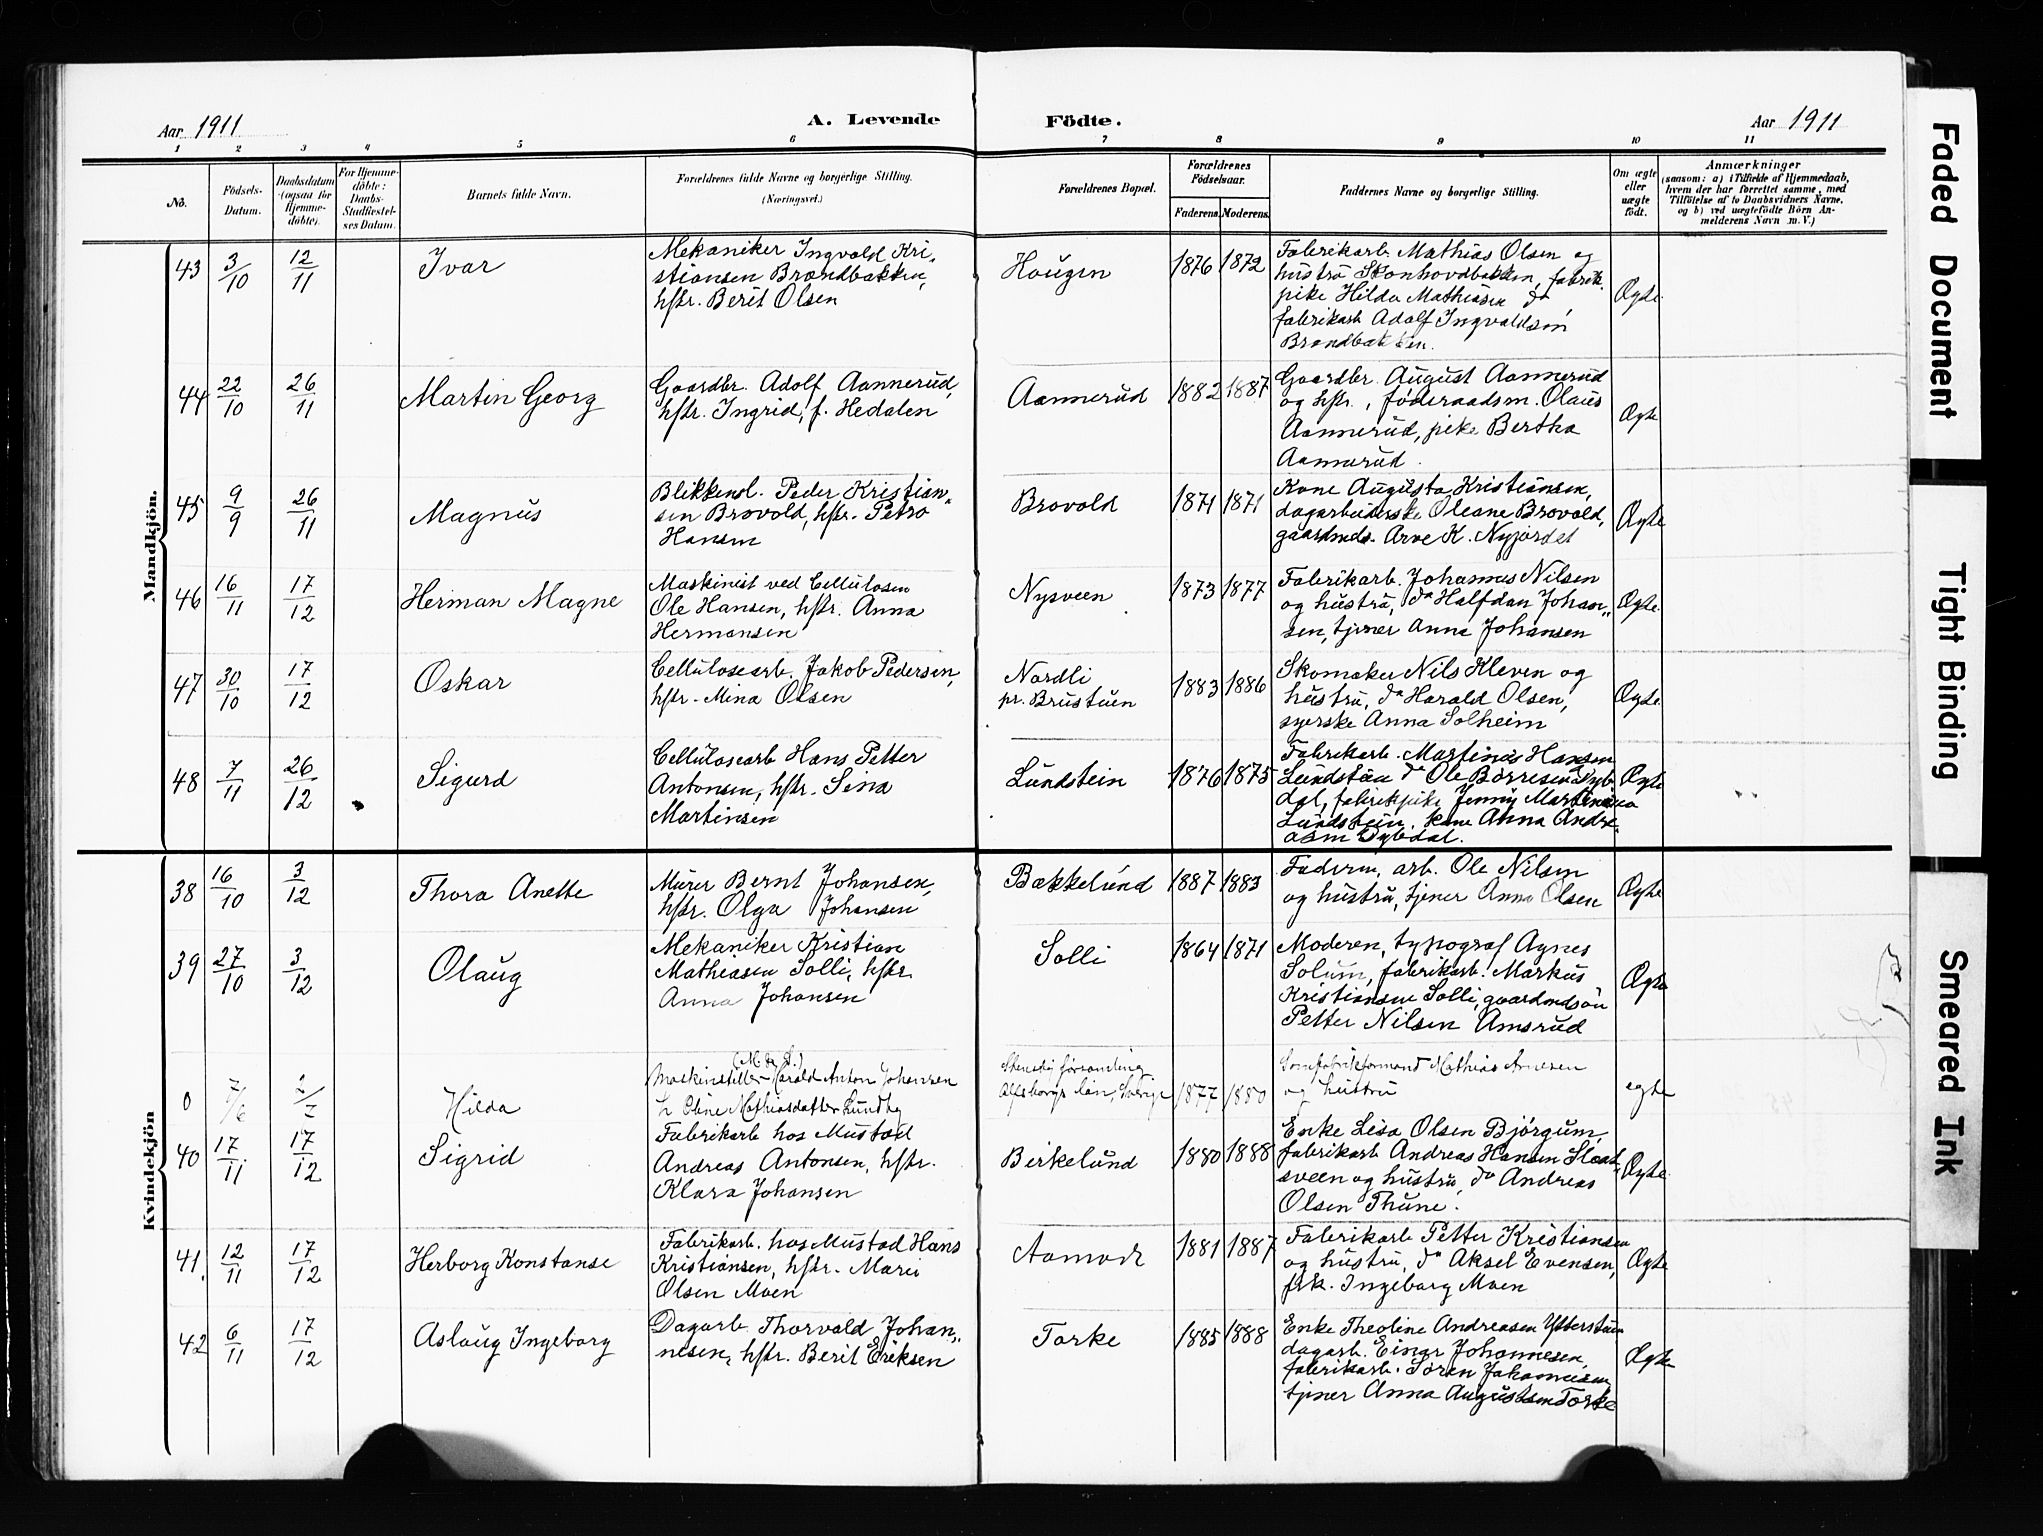 Aar 1911
A. Levende
Födte.
Aar 1911
1 2 3 4 5 6 7 8 9 10 11
No.
Födsels-
Datum.
Daabsdatum
(ogsaa for
Hjemme-
döbte).
For Hjemme-
döbte:
Daabs-
Stadfæstel-
ses Datum.
Barnets fulde Navn.
Forældrenes fulde Navne og borgerlige Stilling.
(Næringsvei.)
Forældrenes Bopæl.
Forældrenes
Födselsaar.
Faderens. Moderens.
Faddernes Navne og borgerlige Stilling.
Om ægte
eller
uægte
födt.
Anmærkninger
(saasom: a) i Tilfælde af Hjemmedaab,
hvem der har forrettet samme, med
Tilföielse af to Daabsvidners Navne,
og b) ved uægtefödte Börn An-
melderens Navn m. V.)
Mandkjön.
43 3/10 12/11 Ivar
Mekaniker Ingvald Kri-
stiansen Brændbakken,
hstr. Berit Olsen
Haugen 1876 1872
Fabrikarb. Mathias Olsen og
hustru Skonhovdbakken, fabrik.
pike Hilda Mathiasen da
fabrikarb Adolf Ingvaldsen
Brændbakken.
Ægte
44 22/10 26/11 Martin Georg
Gaardbr. Adolf Aannerud,
hstr. Ingrid, f. Hedalen
Aannerud 1882 1887
Gaardbr. August Aannerud
og hstr., föderaadsm. Olaus
Aannerud, pike Bertha
Aannerud.
Ægte
45 9/9 26/11 Magnus
Blikkensl. Peder Kristian-
sen Brovold, hstr. Petra
Hansen
Brovold 1871 1871
Kone Augusta Kristiansen,
dagarbeiderske Oleane Brovold,
gaardmds. Arve K. Nyjordet
Ægte
46 16/11 17/12 Herman Magne
Maskinist ved Cellulosen
Ole Hansen, hstr. Anna
Hermansen
Nysveen 1873 1877
Fabrikarb. Johannes Nilsen
og hustru, da Halfdan Johan-
sen, tjener Anna Johansen
Ægte
47 30/10 17/12 Oskar
Cellulosearb. Jakob Pedersen,
hstr. Mina Olsen
Nordli
pr. Brustuen 1883 1886
Skomaker Nils Kleven og
hustru, da Harald Olsen,
syerske Anna Solheim
Ægte
48 7/11 26/12 Sigurd
Cellulosearb Hans Petter
Antonsen, hstr. Sina
Martinsen
Lundstein 1876 1875
Fabrikarb. Martinus Hansen
Lundstein da Ole Börresen Dyb-
dal, fabrikpike Jenny Martinsen
Lundstein, kone Anna Andre-
asen Dybdal.
Ægte
Kvindekjön
38 16/10 3/12 Thora Anette
Murer Bernt Johansen,
hstr. Olga Johansen
Bækkelund 1887 1883
Faderen, arb. Ole Nilsen
og hustru, tjener Anna Olsen
Ægte
39 27/10 3/12 Olaug
Mekaniker Kristian
Mathiasen Solli, hstr.
Anna Johansen
Solli 1864 1871
Moderen, typograf Agnes
Solum, fabrikarb. Markus
Kristiansen Solli, gaardmdsön
Petter Nilsen Amsrud
Ægte
0 7/6 2/7 Hilda
Maskinstiller Harald Anton Johansen
h Oline Mathiasdatter Lundby
Stensby församling
Alfsborgs län, Sverige 1877 1880
Somfabrikformand Mathias Arnesen
og hustru
egte
40 17/11 17/12 Sigrid
Fabrikarb hos Mustad
Andreas Antonsen, hstr.
Klara Johansen
Birkelund 1880 1888
Enke Lisa Olsen Bjørgum,
fabrikarb Andreas Hansen Slaat-
sveen og hustru, da Andreas
Olsen Thune.
Ægte
41. 12/11 17/12 Herborg Konstanse
Fabrikarb. hos Mustad Hans
Kristiansen, hstr. Marie
Olsen Moen
Aamodt 1881 1887
Fabrikarb Petter Kristiansen
og hustru, da Aksel Evensen,
frk. Ingeborg Moen
Ægte
42 6/11 17/12 Aslaug Ingeborg
Dagarb. Thorvald Johan-
nesen, hstr. Berit Eriksen
Torke 1885 1888
Enke Theoline Andreasen Ytterstuen
dagarb. Einar Johannesen,
fabrikarb. Sören Johannesen
tjener Anna Augustsen Torke
Ægte
Faded Document
Tight Binding
Smeared Ink